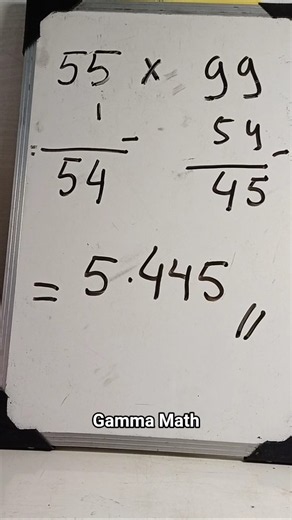 55 × 99
1 - 54 -
54 45
= 5.445 //
Gamma Math